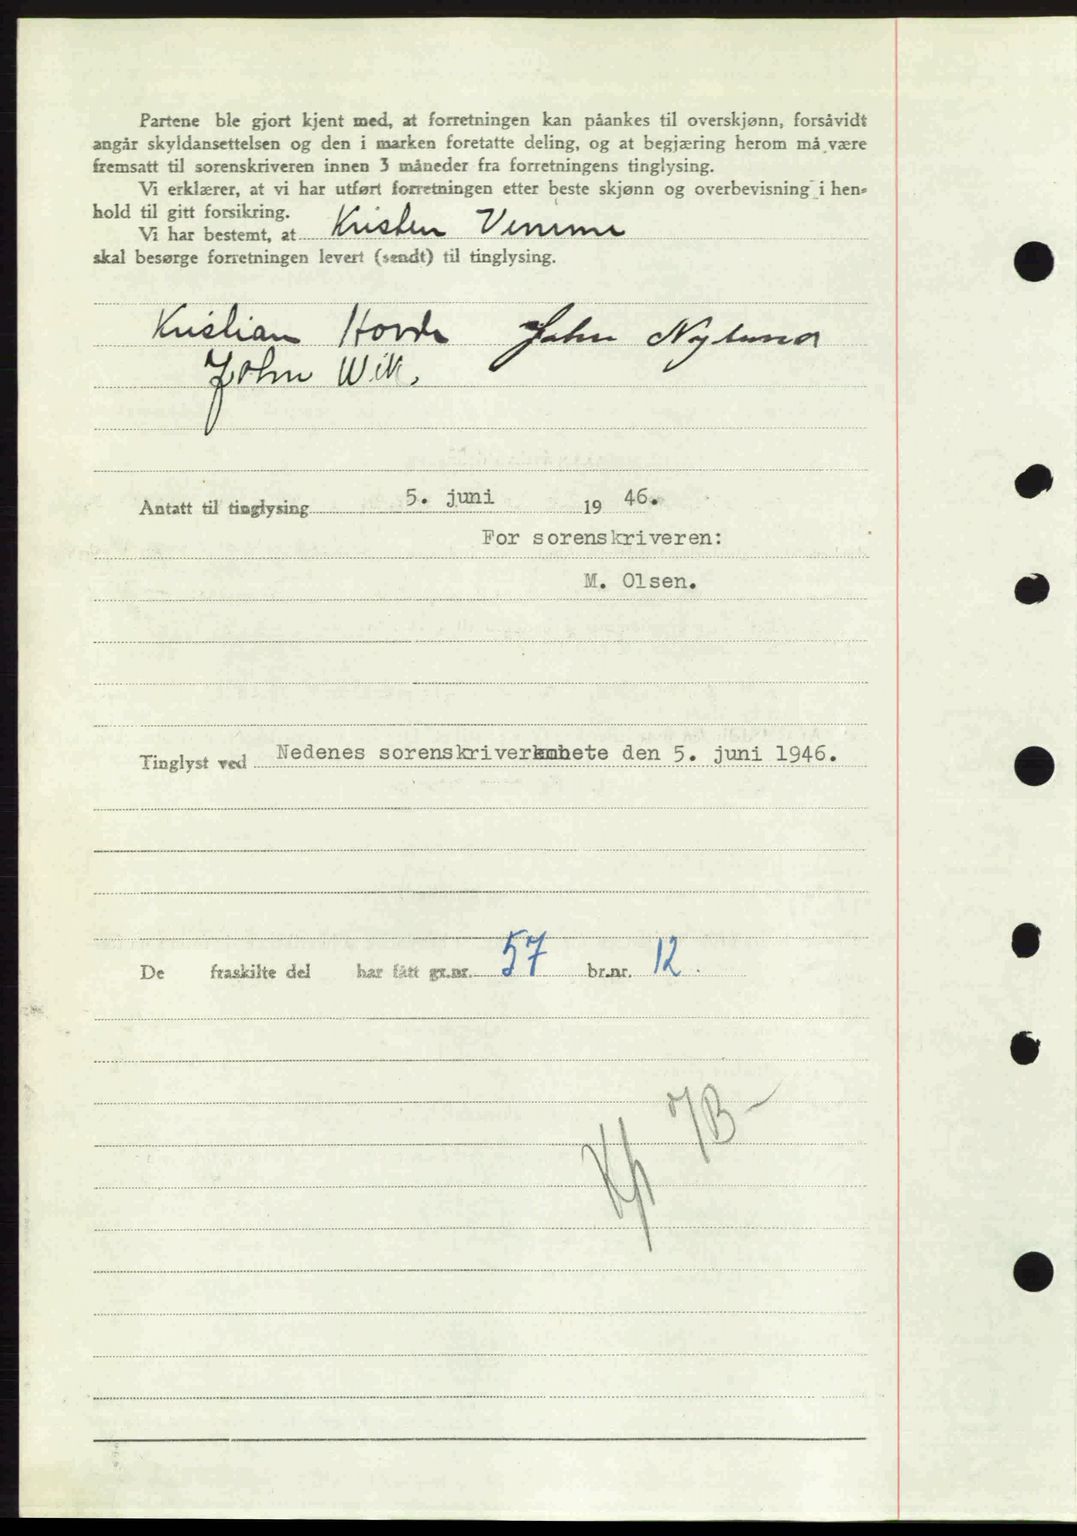 Partene ble gjort kjent med, at forretningen kan påankes til overskjønn, forsåvidt
angår skyldansettelsen og den i marken foretatte deling, og at begjæring herom må være
fremsatt til sorenskriveren innen 3 måneder fra forretningens tinglysing.
Vi erklærer, at vi har utført forretningen etter beste skjønn og overbevisning i hen-
hold til gitt forsikring.
Vi har bestemt, at Kristen Vemme
skal besørge forretningen levert (sendt) til tinglysing.
Kristian Hovde John Nylund
John Wik.
Antatt til tinglysing 5. juni 1946.
For sorenskriveren:
M. Olsen.
Tinglyst ved Nedenes sorenskriverembete den 5. juni 1946.
De fraskilte del har fått gr.nr. 57 br.nr. 12.